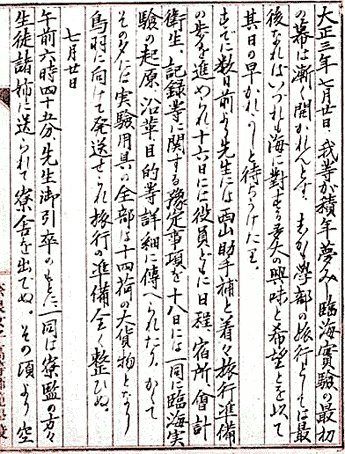 大正三年七月廿日、我等が積年夢みし臨海實驗の最初
の幕は漸く開かれんとす、しかも學部の旅行としては最
後なればいづれも海に對する多大の興味と希望とを以て
其日の早かれかしと待ちうけたりき。
すでに数日前より先生には西山助手補と着々旅行準備
の歩を進められ十六日には役員どもに日程、宿所、會計
衛生、記録等に関する豫定事項を十八日には一同に臨海実
驗の起原、沿革、目的等詳細に傳へられたり、かくて
その夕には実驗用具の全部は十四荷の大貨物となりて
鳥羽に向けて発送せられ旅行の準備全く整ひぬ。
七月廿日
午前六時四十五分、先生御引卒のもとに一同は寮監の方々
生徒諸姉に送られて寮舎を出でぬ。その頃より空